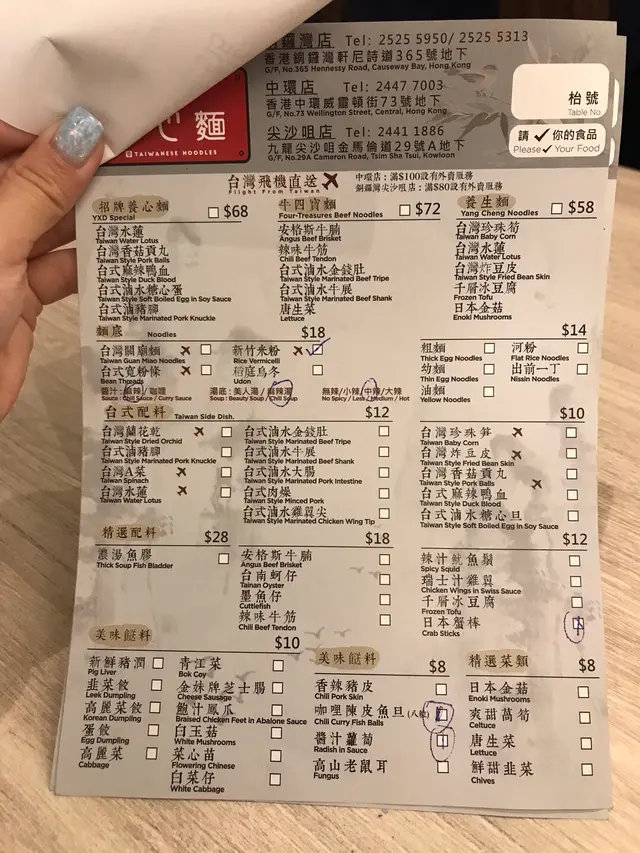 鑼灣店 Tel: 2525 5950/ 2525 5313
香港銅鑼灣軒尼詩道365號地下
G/F, No.365 Hennessy Road, Causeway Bay, Hong Kong
中環店 Tel: 2447 7003
香港中環威靈頓街73號地下
G/F, No.73 Wellington Street, Central, Hong Kong
尖沙咀店 Tel: 2441 1886
九龍尖沙咀金馬倫道29號A地下
G/F, No.29A Cameron Road, Tsim Sha Tsui, Kowloon
心麵
TAIWANESE NOODLES
枱號
Table No
請 ✓ 你的食品
Please ✓ Your Food
台灣飛機直送
Flight From Taiwan
中環店：滿$100設有外賣服務
銅鑼灣尖沙咀店：滿$80設有外賣服務
招牌養心麵 $68
YXD Special
台灣水蓮
Taiwan Water Lotus
台灣香菇貢丸
Taiwan Style Pork Balls
台式麻辣鴨血
Taiwan Style Duck Blood
台式滷水糖心蛋
Taiwan Style Soft Boiled Egg in Soy Sauce
台式滷豬腳
Taiwan Style Marinated Pork Knuckle
牛四寶麵 $72
Four-Treasures Beef Noodles
安格斯牛腩
Angus Beef Brisket
辣味牛筋
Chili Beef Tendon
台式滷水金錢肚
Taiwan Style Marinated Beef Tripe
台式滷水牛展
Taiwan Style Marinated Beef Shank
唐生菜
Lettuce
養生麵 $58
Yang Cheng Noodles
台灣珍珠筍
Taiwan Baby Corn
台灣水蓮
Taiwan Water Lotus
台灣炸豆皮
Taiwan Style Fried Bean Skin
千層冰豆腐
Frozen Tofu
日本金菇
Enoki Mushrooms
麵底 Noodles $18
台灣關廟麵
Taiwan Guan Miao Noodles
台式寬粉條
Bean Threads
新竹米粉
Rice Vermicelli
稻庭烏冬
Udon
醬汁：麻辣/咖喱
Sauce : Chili Sauce / Curry Sauce
湯底：美人湯/麻辣湯
Soup : Beauty Soup / Chili Soup
無辣/小辣/中辣/大辣
No Spicy / Less / Medium / Hot
$14
粗麵
Thick Egg Noodles
幼麵
Thin Egg Noodles
油麵
Yellow Noodles
河粉
Flat Rice Noodles
出前一丁
Nissin Noodles
台式配料 Taiwan Side Dish. $12
台灣蘭花乾
Taiwan Style Dried Orchid
台式滷豬腳
Taiwan Style Marinated Pork Knuckle
台灣A菜
Taiwan Spinach
台灣水蓮
Taiwan Water Lotus
台式滷水金錢肚
Taiwan Style Marinated Beef Tripe
台式滷水牛展
Taiwan Style Marinated Beef Shank
台式滷水大腸
Taiwan Style Marinated Pork Intestine
台式肉燥
Taiwan Style Minced Pork
台式滷水雞翼尖
Taiwan Style Marinated Chicken Wing Tip
$10
台灣珍珠笋
Taiwan Baby Corn
台灣炸豆皮
Taiwan Style Fried Bean Skin
台灣香菇貢丸
Taiwan Style Pork Balls
台式麻辣鴨血
Taiwan Style Duck Blood
台式滷水糖心旦
Taiwan Style Soft Boiled Egg in Soy Sauce
精選配料 $28
濃湯魚膠
Thick Soup Fish Bladder
$18
安格斯牛腩
Angus Beef Brisket
台南蚵仔
Tainan Oyster
墨魚仔
Cuttlefish
辣味牛筋
Chili Beef Tendon
$12
辣汁魷魚鬚
Spicy Squid
瑞士汁雞翼
Chicken Wings in Swiss Sauce
千層冰豆腐
Frozen Tofu
日本蟹棒
Crab Sticks
美味餸料 $10
新鮮豬潤
Pig Liver
韭菜餃
Leek Dumpling
高麗菜餃
Korean Dumpling
蛋餃
Egg Dumpling
高麗菜
Cabbage
青江菜
Bok Coy
金妹牌芝士腸
Cheese Sausage
鮑汁鳳瓜
Braised Chicken Feet in Abalone Sauce
白玉菇
White Mushrooms
菜心苗
Flowering Chinese
白菜仔
White Cabbage
美味餸料 $8
香辣豬皮
Chili Pork Skin
咖哩陳皮魚旦(八粒)
Chili Curry Fish Balls
醬汁蘿蔔
Radish in Sauce
高山老鼠耳
Fungus
精選菜類 $8
日本金菇
Enoki Mushrooms
爽甜萵筍
Celtuce
唐生菜
Lettuce
鮮甜韭菜
Chives